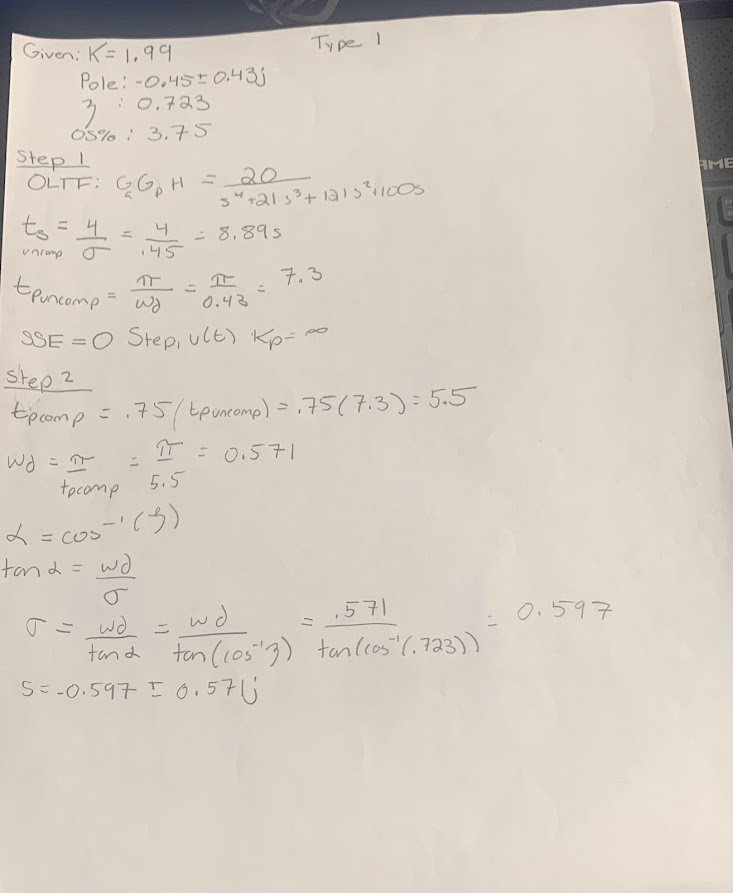 Given: K = 1.99 Type 1
Pole: -0.45 ± 0.43j
ζ : 0.723
OS% : 3.75
Step 1
OLTF: GcGpH = 20 / s⁴+21s³+121s²+100s
ts uncomp = 4/σ = 4/.45 = 8.89s
tpuncomp = π/ωd = π/0.43 = 7.3
SSE = 0 Step, u(t) Kp = ∞
Step 2
tpcomp = .75(tpuncomp) = .75(7.3) = 5.5
ωd = π/tpcomp = π/5.5 = 0.571
α = cos⁻¹(ζ)
tan α = ωd/σ
σ = ωd/tan α = ωd/tan(cos⁻¹ζ) = .571/tan(cos⁻¹(.723)) = 0.597
S = -0.597 ± 0.571j